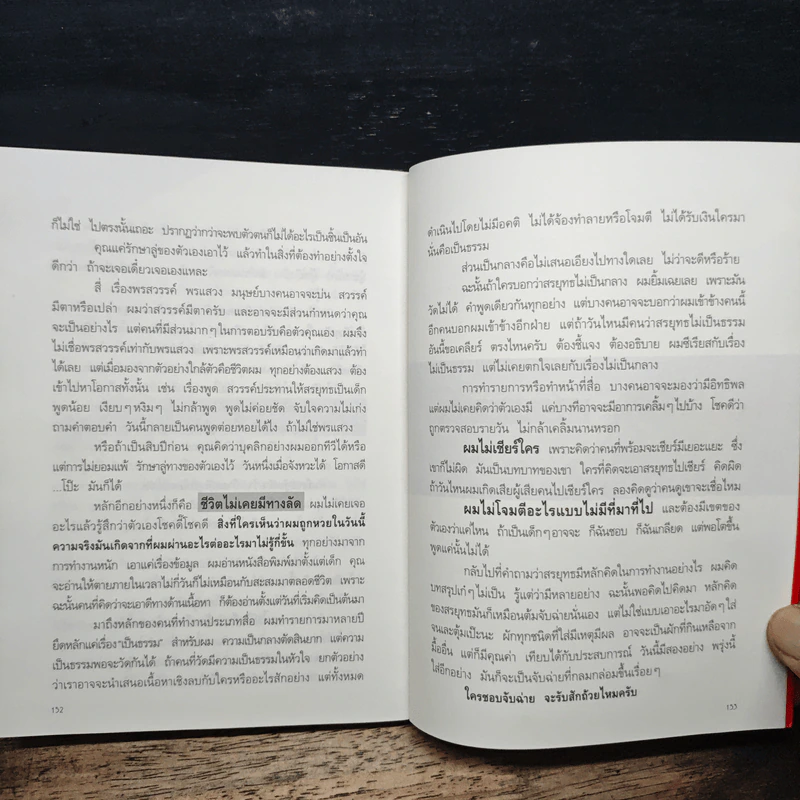 ก็ไม่ใช่ ไปตรงนั้นเถอะ ปรากฏว่ากว่าจะพบตัวตนก็ไม่ได้อะไรเป็นชิ้นเป็นอัน
คุณแค่รักษาลู่ของตัวเองเอาไว้ แล้วทำในสิ่งที่ต้องทำอย่างตั้งใจ
ดีกว่า ถ้าจะเจอเดี๋ยวเจอเองแหละ
สี่ เรื่องพรสวรรค์ พรแสวง มนุษย์บางคนอาจจะบ่น สวรรค์
มีตาหรือเปล่า ผมว่าสวรรค์มีตาครับ และอาจจะมีส่วนกำหนดว่าคุณ
จะเป็นอย่างไร แต่คนที่มีส่วนมากๆ ในการตอบรับคือตัวคุณเอง ผมจึง
ไม่เชื่อพรสวรรค์เท่ากับพรแสวง เพราะพรสวรรค์เหมือนว่าเกิดมาแล้วทำ
ได้เลย แต่เมื่อมองจากตัวอย่างใกล้ตัวคือชีวิตผม ทุกอย่างต้องแสวง ต้อง
เข้าไปหาโอกาสทั้งนั้น เช่น เรื่องพูด สวรรค์ประทานให้สรยุทธเป็นเด็ก
พูดน้อย เงียบๆ หงิมๆ ไม่กล้าพูด พูดไม่ค่อยชัด จับใจความไม่เก่ง
ถามคำตอบคำ วันนี้กลายเป็นคนพูดต่อยหอยได้ไง ถ้าไม่ใช่พรแสวง
หรือถ้าเป็นสิบปีก่อน คุณคิดว่าบุคลิกอย่างผมออกทีวีได้หรือ
แต่การไม่ยอมแพ้ รักษาลู่ทางของตัวเองไว้ วันหนึ่งเมื่อจังหวะได้ โอกาสดี
...โป๊ะ มันก็ได้
หลักอีกอย่างหนึ่งก็คือ ชีวิตไม่เคยมีทางลัด ผมไม่เคยเจอ
อะไรแล้วรู้สึกว่าตัวเองโชคดี๊โชคดี สิ่งที่ใครเห็นว่าผมถูกหวยในวันนี้
ความจริงมันเกิดจากที่ผมผ่านอะไรต่ออะไรมาไม่รู้กี่ชั้น ทุกอย่างมาจาก
การทำงานหนัก เอาแค่เรื่องข้อมูล ผมอ่านหนังสือพิมพ์มาตั้งแต่เด็ก คุณ
จะอ่านให้ตายภายในเวลาไม่กี่วันก็ไม่เหมือนกับสะสมมาตลอดชีวิต เพราะ
ฉะนั้นคนที่คิดว่าจะเอาดีทางด้านเนื้อหา ก็ต้องอ่านตั้งแต่วันที่เริ่มคิดเป็นต้นมา
มาถึงหลักของคนที่ทำงานประเภทสื่อ ผมทำรายการมาหลายปี
ยึดหลักแค่เรื่อง“เป็นธรรม” สำหรับผม ความเป็นกลางตัดสินยาก แต่ความ
เป็นธรรมพอจะวัดกันได้ ถ้าคนที่วัดมีความเป็นธรรมในหัวใจ ยกตัวอย่าง
ว่าเราอาจจะนำเสนอเนื้อหาเชิงลบกับใครหรืออะไรสักอย่าง แต่ทั้งหมด
152
ดำเนินไปโดยไม่มีอคติ ไม่ได้จ้องทำลายหรือโจมตี ไม่ได้รับเงินใครมา
นั่นคือเป็นธรรม
ส่วนเป็นกลางคือไม่เสนอเอียงไปทางใดเลย ไม่ว่าจะดีหรือร้าย
ฉะนั้นถ้าใครบอกว่าสรยุทธไม่เป็นกลาง ผมยิ้มเฉยเลย เพราะมัน
วัดไม่ได้ คำพูดเดียวกันทุกอย่าง แต่บางคนอาจจะบอกว่าผมเข้าข้างคนนี้
อีกคนบอกผมเข้าข้างอีกฝ่าย แต่ถ้าวันไหนมีคนว่าสรยุทธไม่เป็นธรรม
อันนี้ขอเคลียร์ ตรงไหนครับ ต้องชี้แจง ต้องอธิบาย ผมซีเรียสกับเรื่อง
ไม่เป็นธรรม แต่ไม่เคยตกใจเลยกับเรื่องไม่เป็นกลาง
การทำรายการหรือทำหน้าที่สื่อ บางคนอาจจะมองว่ามีอิทธิพล
แต่ผมไม่เคยคิดว่าตัวเองมี แต่บางทีอาจจะมีอาการเคลิ้มๆ ไปบ้าง โชคดีว่า
ถูกตรวจสอบรายวัน ไม่กล้าเคลิ้มนานหรอก
ผมไม่เชียร์ใคร เพราะคิดว่าคนที่พร้อมจะเชียร์มีเยอะแยะ ซึ่ง
เขาก็ไม่ผิด มันเป็นบทบาทของเขา ใครที่คิดจะเอาสรยุทธไปเชียร์ คิดผิด
ถ้าวันไหนผมเกิดเสียผู้เสียคนไปเชียร์ใคร ลองคิดดูว่าคนดูเขาจะเชื่อไหม
ผมไม่โจมตีอะไรแบบไม่มีที่มาที่ไป และต้องมีเขตของ
ตัวเองว่าแค่ไหน ถ้าเป็นเด็กๆ อาจจะ ก็ฉันชอบ ก็ฉันเกลียด แต่พอโตขึ้น
พูดแค่นั้นไม่ได้
กลับไปที่คำถามว่าสรยุทธมีหลักคิดในการทำงานอย่างไร ผมคิด
บทสรุปเก๋ๆ ไม่เป็น รู้แต่ว่ามีหลายอย่าง ฉะนั้นพอคิดไปคิดมา หลักคิด
ของสรยุทธมันก็เหมือนต้มจับฉ่ายนั่นเอง แต่ไม่ใช่แบบเอาอะไรมาอัดๆ ใส่
จนเละตุ้มเป๊ะนะ ผักทุกชนิดที่ใส่มีเหตุมีผล อาจจะเป็นผักที่กินเหลือจาก
มื้ออื่น แต่ก็มีคุณค่า เทียบได้กับประสบการณ์ วันนี้มีสองอย่าง พรุ่งนี้
ใส่อีกอย่าง มันก็จะเป็นจับฉ่ายที่กลมกล่อมขึ้นเรื่อยๆ
ใครชอบจับฉ่าย จะรับสักถ้วยไหมครับ
153